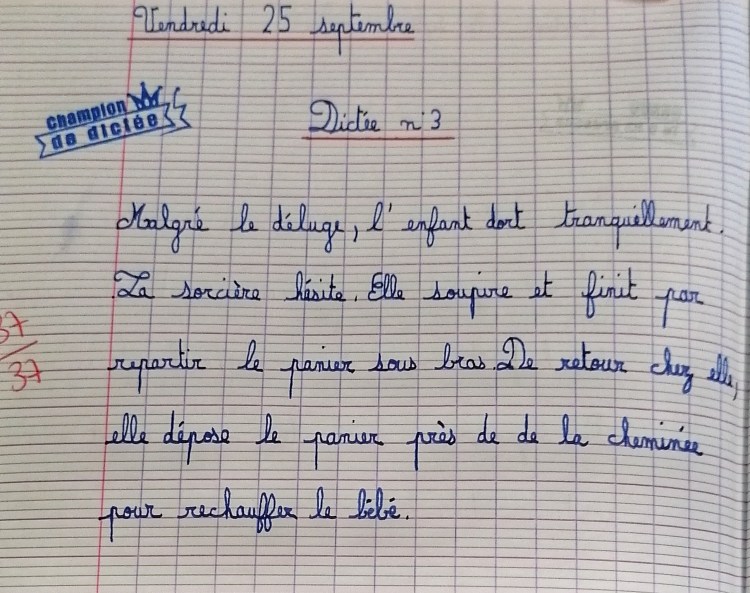 Vendredi 25 septembre
champion
de dictée
Dictée n°3
Malgré le déluge, l'enfant dort tranquillement.
La sorcière hésite. Elle soupire et finit par
37
repartir le panier sous bras. De retour chez elle,
37
elle dépose le panier près de de la cheminée
pour rechauffer le bébé.